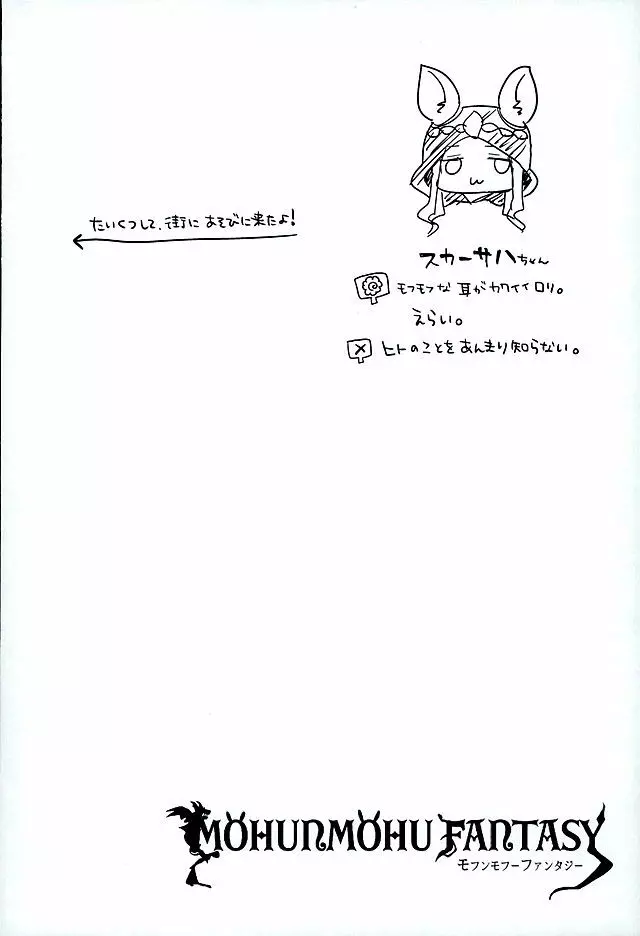 たいくつして、街に あそびに来たよ!
スカーサハちゃん
モフモフな 耳がカワイイロリ。
えらい。
ヒトのことをあんまり知らない。
MOHUNMOHU FANTASY
モフンモフーファンタジー